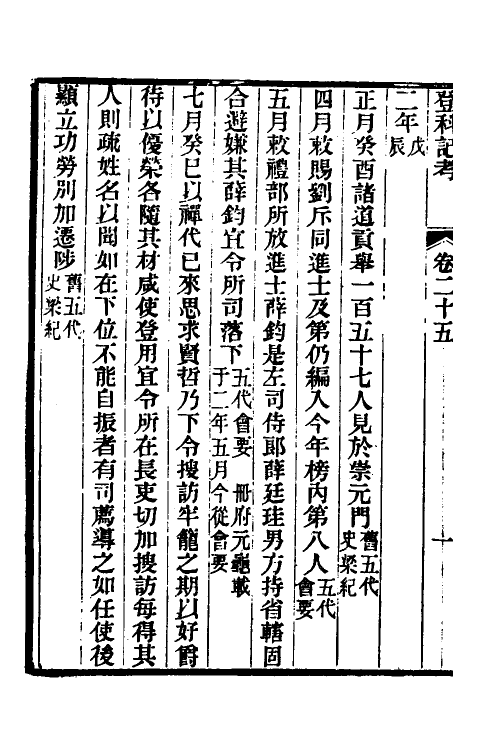 登科記考　卷二十五　一
二年戊辰
正月癸酉諸道貢舉一百五十七人見於崇元門舊五代史梁紀
四月敕賜劉斥同進士及第仍編入今年榜內第八人五代會要
五月敕禮部所放進士薛鈞是左司侍郎薛廷珪男方持省轄固
合避嫌其薛鈞宜令所司落下五代會要　冊府元龜載于二年五月今從會要
七月癸巳以禪代已來思求賢哲乃下令搜訪牢籠之期以好爵
待以優榮各隨其材咸使登用宜令所在長吏切加搜訪每得其
人則疏姓名以聞如在下位不能自振者有司薦導之如任使後
顯立功勞別加遷陟舊五代史梁紀